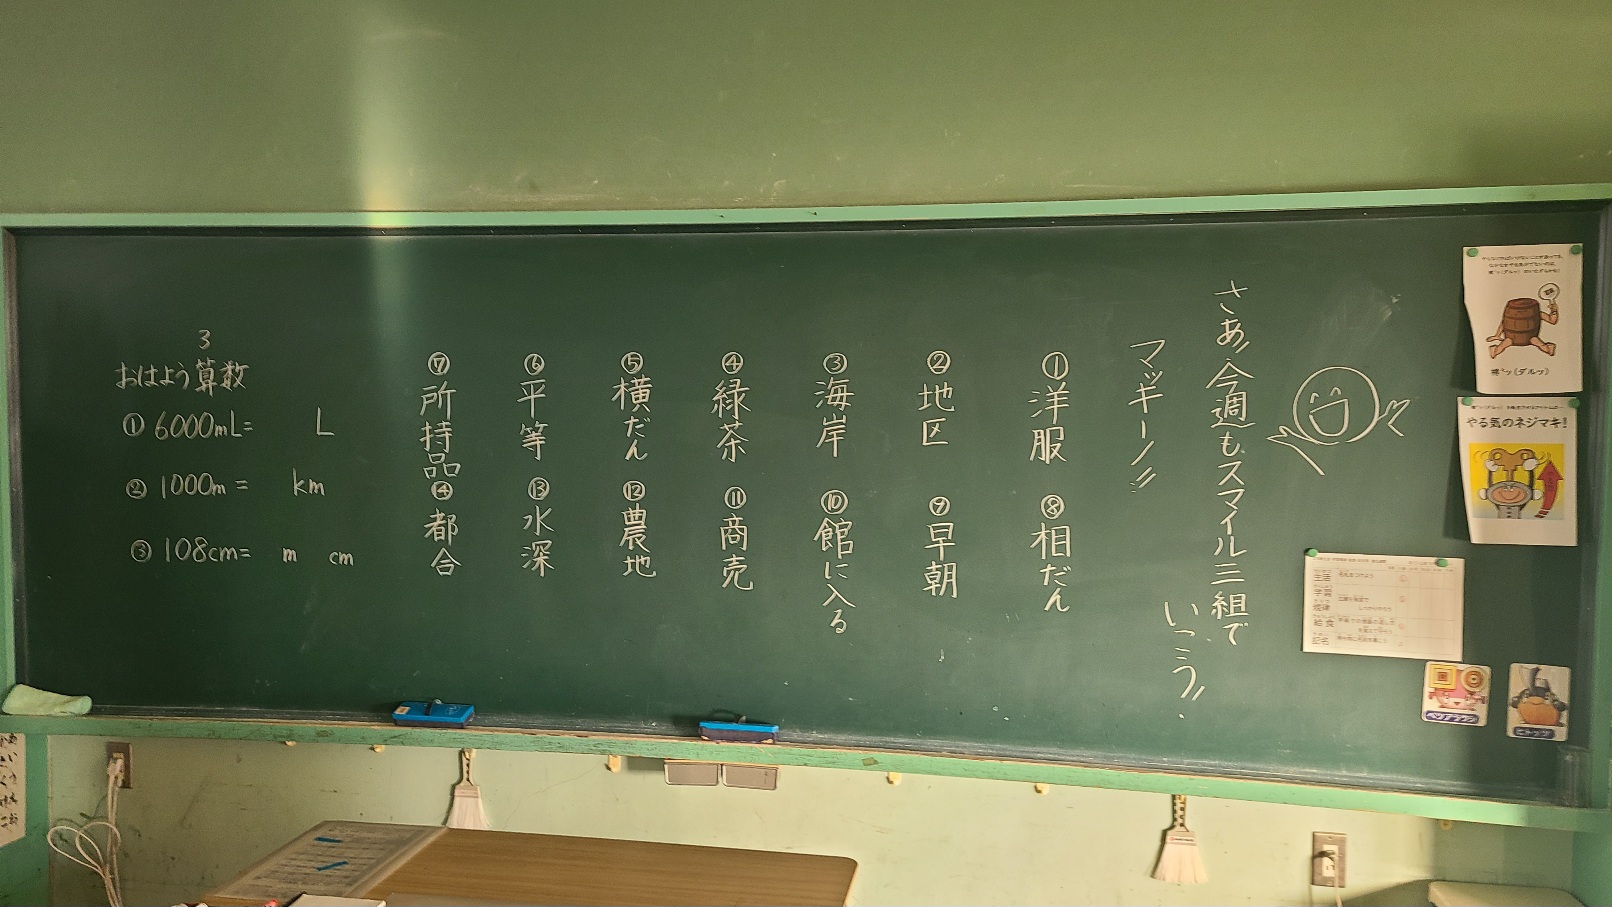 さあ、今週もスマイル三組で
いこう!!
マッキーノ!!
①洋服
②地区
③海岸
④緑茶
⑤横だん
⑥平等
⑦所持品
⑧相だん
⑨早朝
⑩館に入る
⑪商売
⑫農地
⑬水深
⑭都合
3
おはよう算数
① 6000mL= L
② 1000m= km
③ 108cm= m cm
やる気のネジマキ!
生活
学習
規律
給食
記名